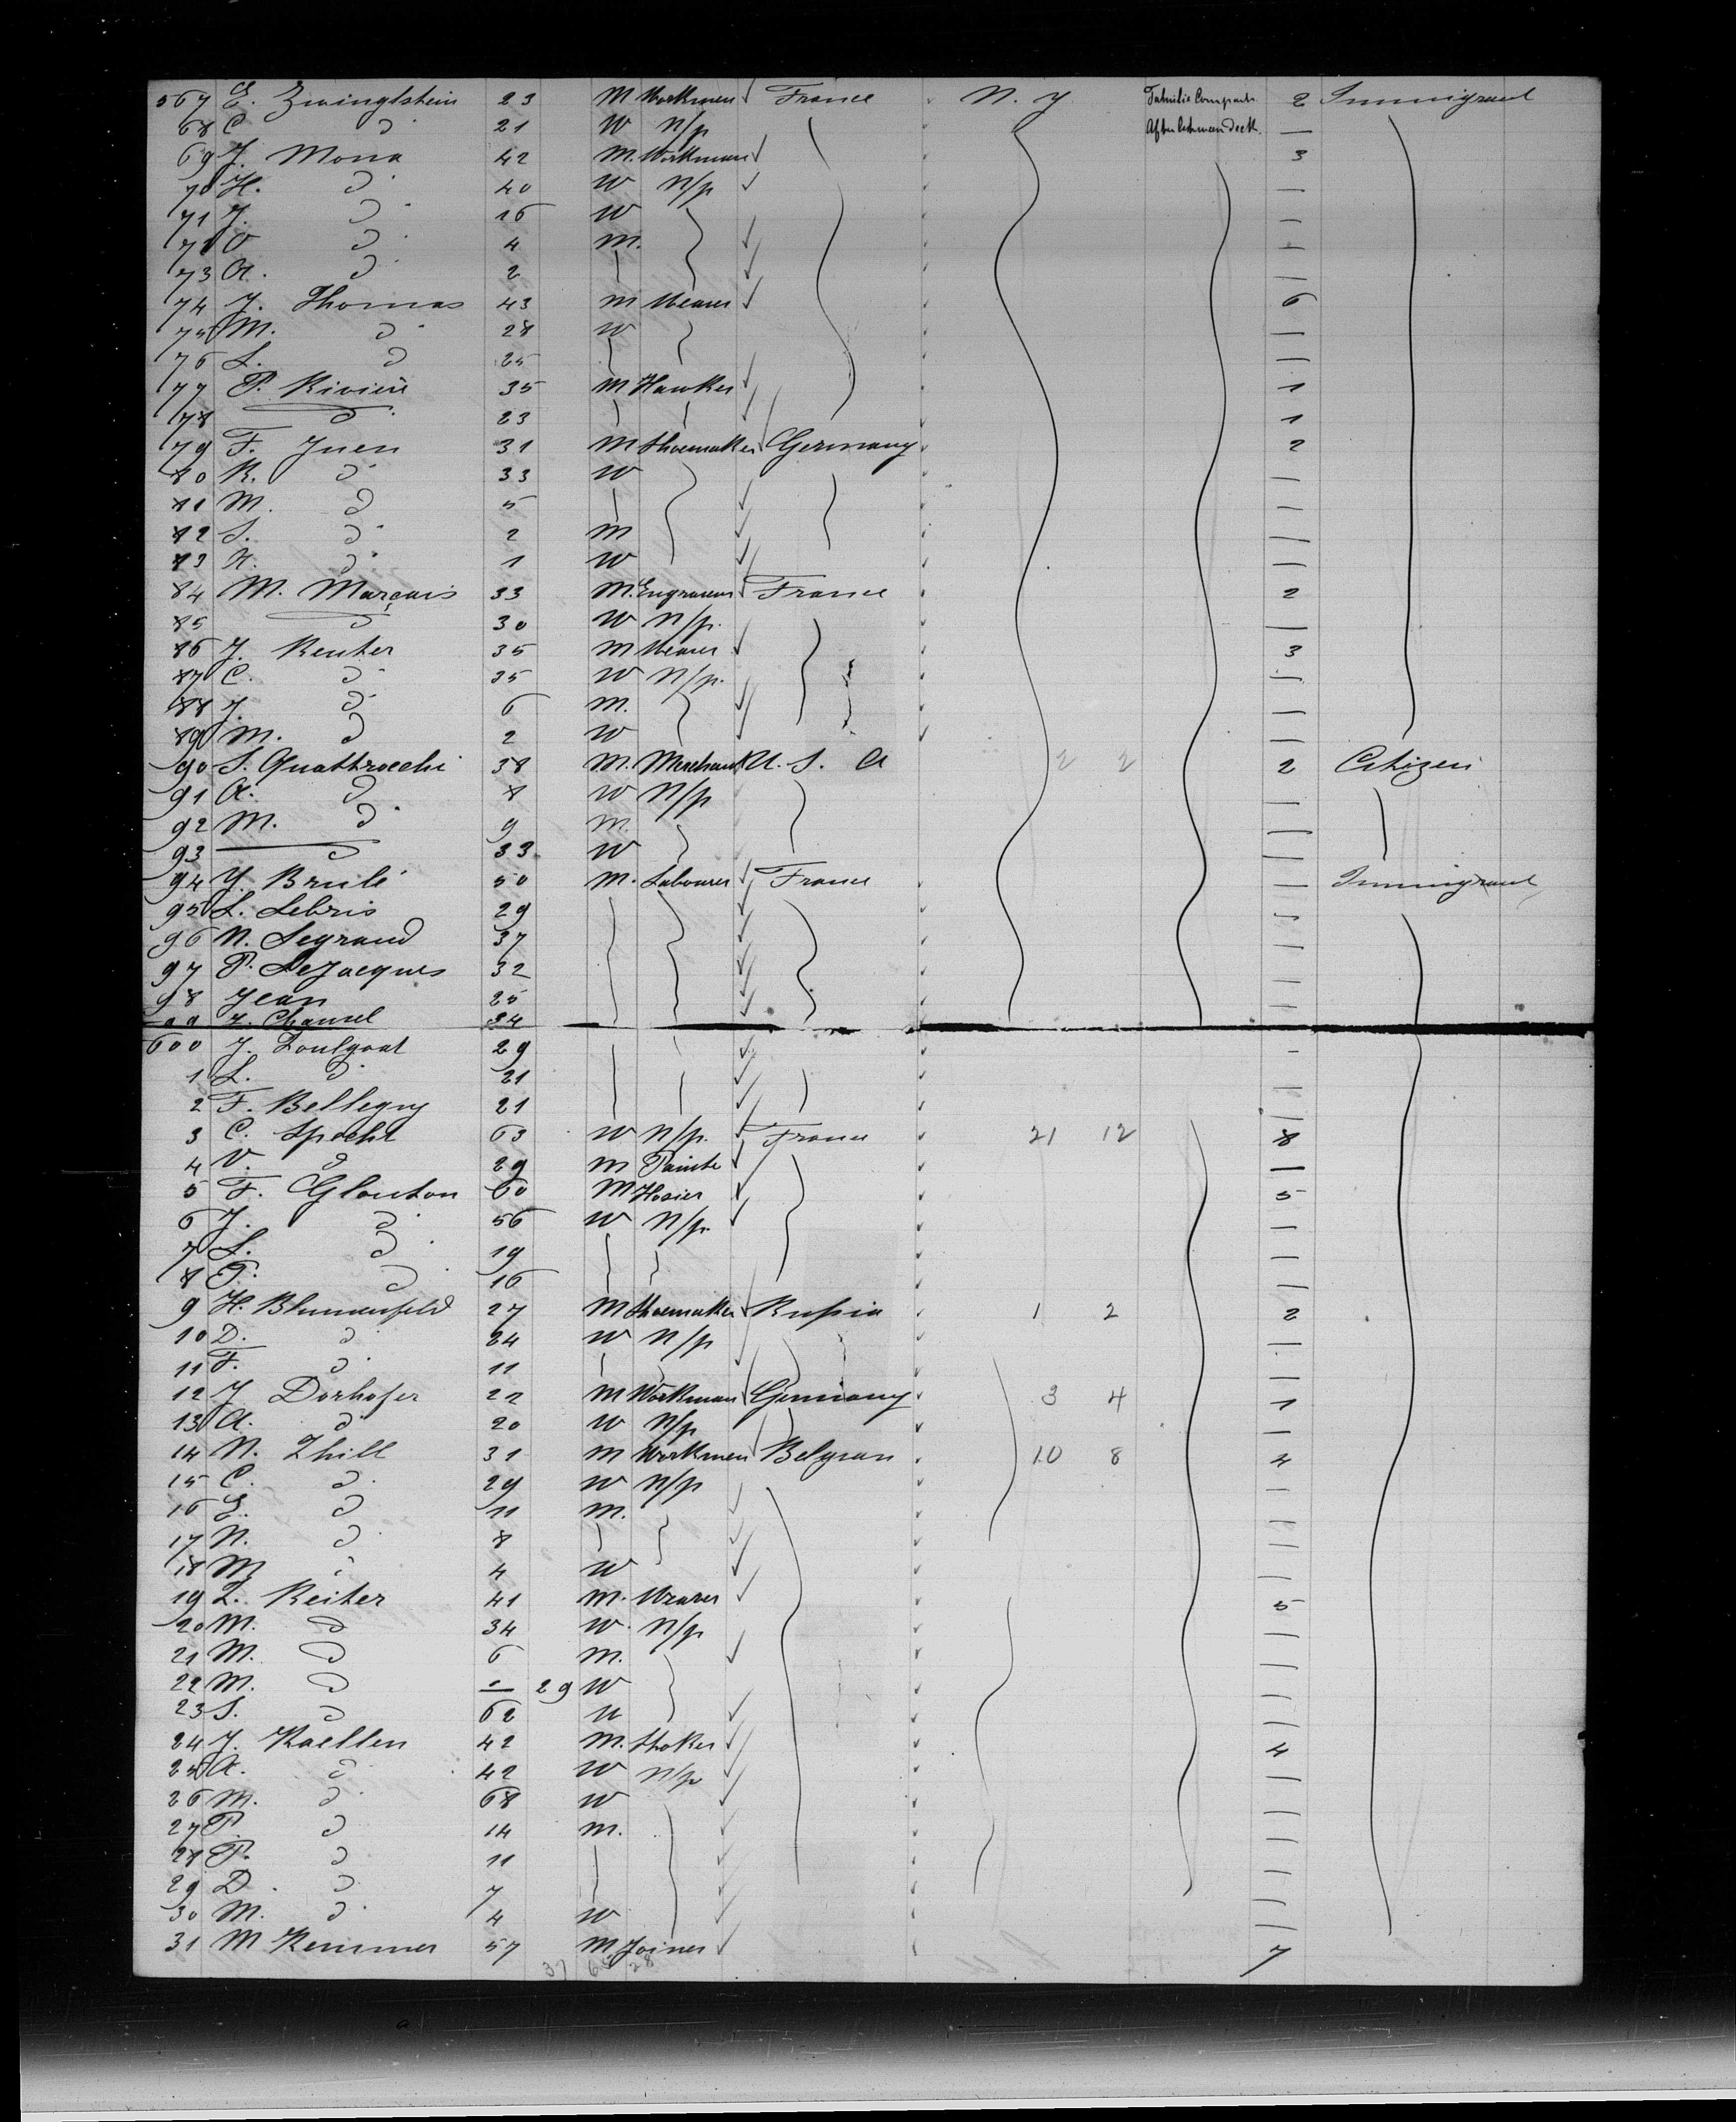 567 E. Zwinglstein 23 M Workman France N. Y 2 Immigrant
68 C d 21 W n/p —
69 J. Mona 42 M. Workman 3
70 H. d 40 W n/p —
71 J. d 16 W —
7 d 4 m. —
73 A. d 2 —
74 J. Thomas 43 m Weaver 6
75 M. d 28 W —
76 L. d 25 —
77 P. Rivière 35 M Hawker 1
78 — d 23 1
79 F. Juen 31 M Shoemaker Germany 2
80 R. d 33 W —
81 M. d 5 —
82 S. d 2 m —
83 d 1 W —
84 M. Marçais 33 M. Engraver France 2
85 — d 30 W n/p. —
86 J. Reuter 35 M Weaver 3
87 C. d 35 W n/p. —
88 J. d 6 m. —
89 M. d 2 W —
90 S. Quattrocchi 38 M. Merchant U. S. A 2 2 2 Citizen
91 A. d 8 W n/p —
92 M. d 9 m. —
93 — d 33 W —
94 Y. Brulé 50 M. Labourer France — Immigrant
95 L. Lebris 29 —
96 N. Legrand 37 —
97 P. LeJacques 32 —
98 Jean 25 —
99 34
600 J. Toulgoat 29 -
1 L. d 21 —
2 F. Bellegny 21 —
3 C. Specht 63 W n/p. France 21 12 8
4 V. d 29 m Painte —
5 F. Glouton 60 M Hosier 5
6 J. d 56 W n/p. —
7 L. d 19 —
8 P. d 16 —
9 H. Blumenfeld 27 M Shoemaker Russia 1 2 2
10 D. d 24 W n/p —
11 F. d 11 —
12 J Dorhofer 22 M Workman Germany 3 4 1
13 A. d 20 W n/p —
14 N. Thill 31 M Workmen Belgian 10 8 4
15 C. d 29 W n/p —
16 E. d 11 m. —
17 N. d 8 —
18 M 4 W —
19 Reiter 41 M. Weaver 5
20 M. d 34 W. n/p —
21 M. d 6 m. —
22 M. d — 29 W —
23 S. d 62 —
24 J. Kaellen 42 M. Stoker 4
25 A. d 42 W n/p —
26 M. d 68 W —
27 P. d 14 m. —
28 P. d 11 —
29 D. d 7 —
30 M. d 4 W —
31 M Kemmer 57 M Joiner 7
37 28